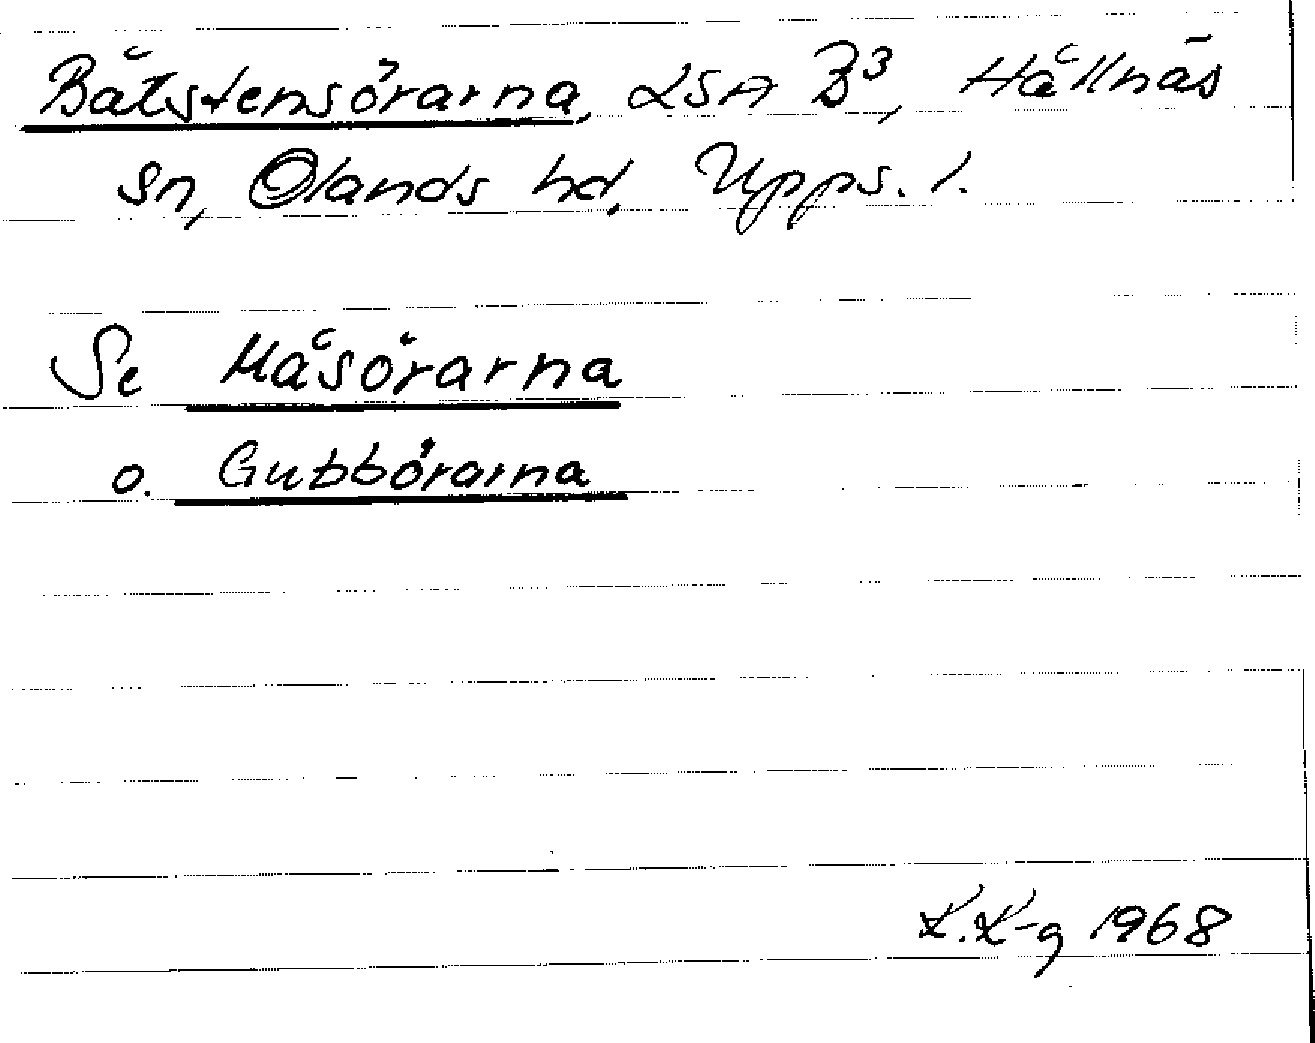 Båtstensörarna, LSA B³, Hållnäs
sn, Olands hd, Upps. l.
Se Måsörarna
o. Gubbörarna
K. K-g 1968